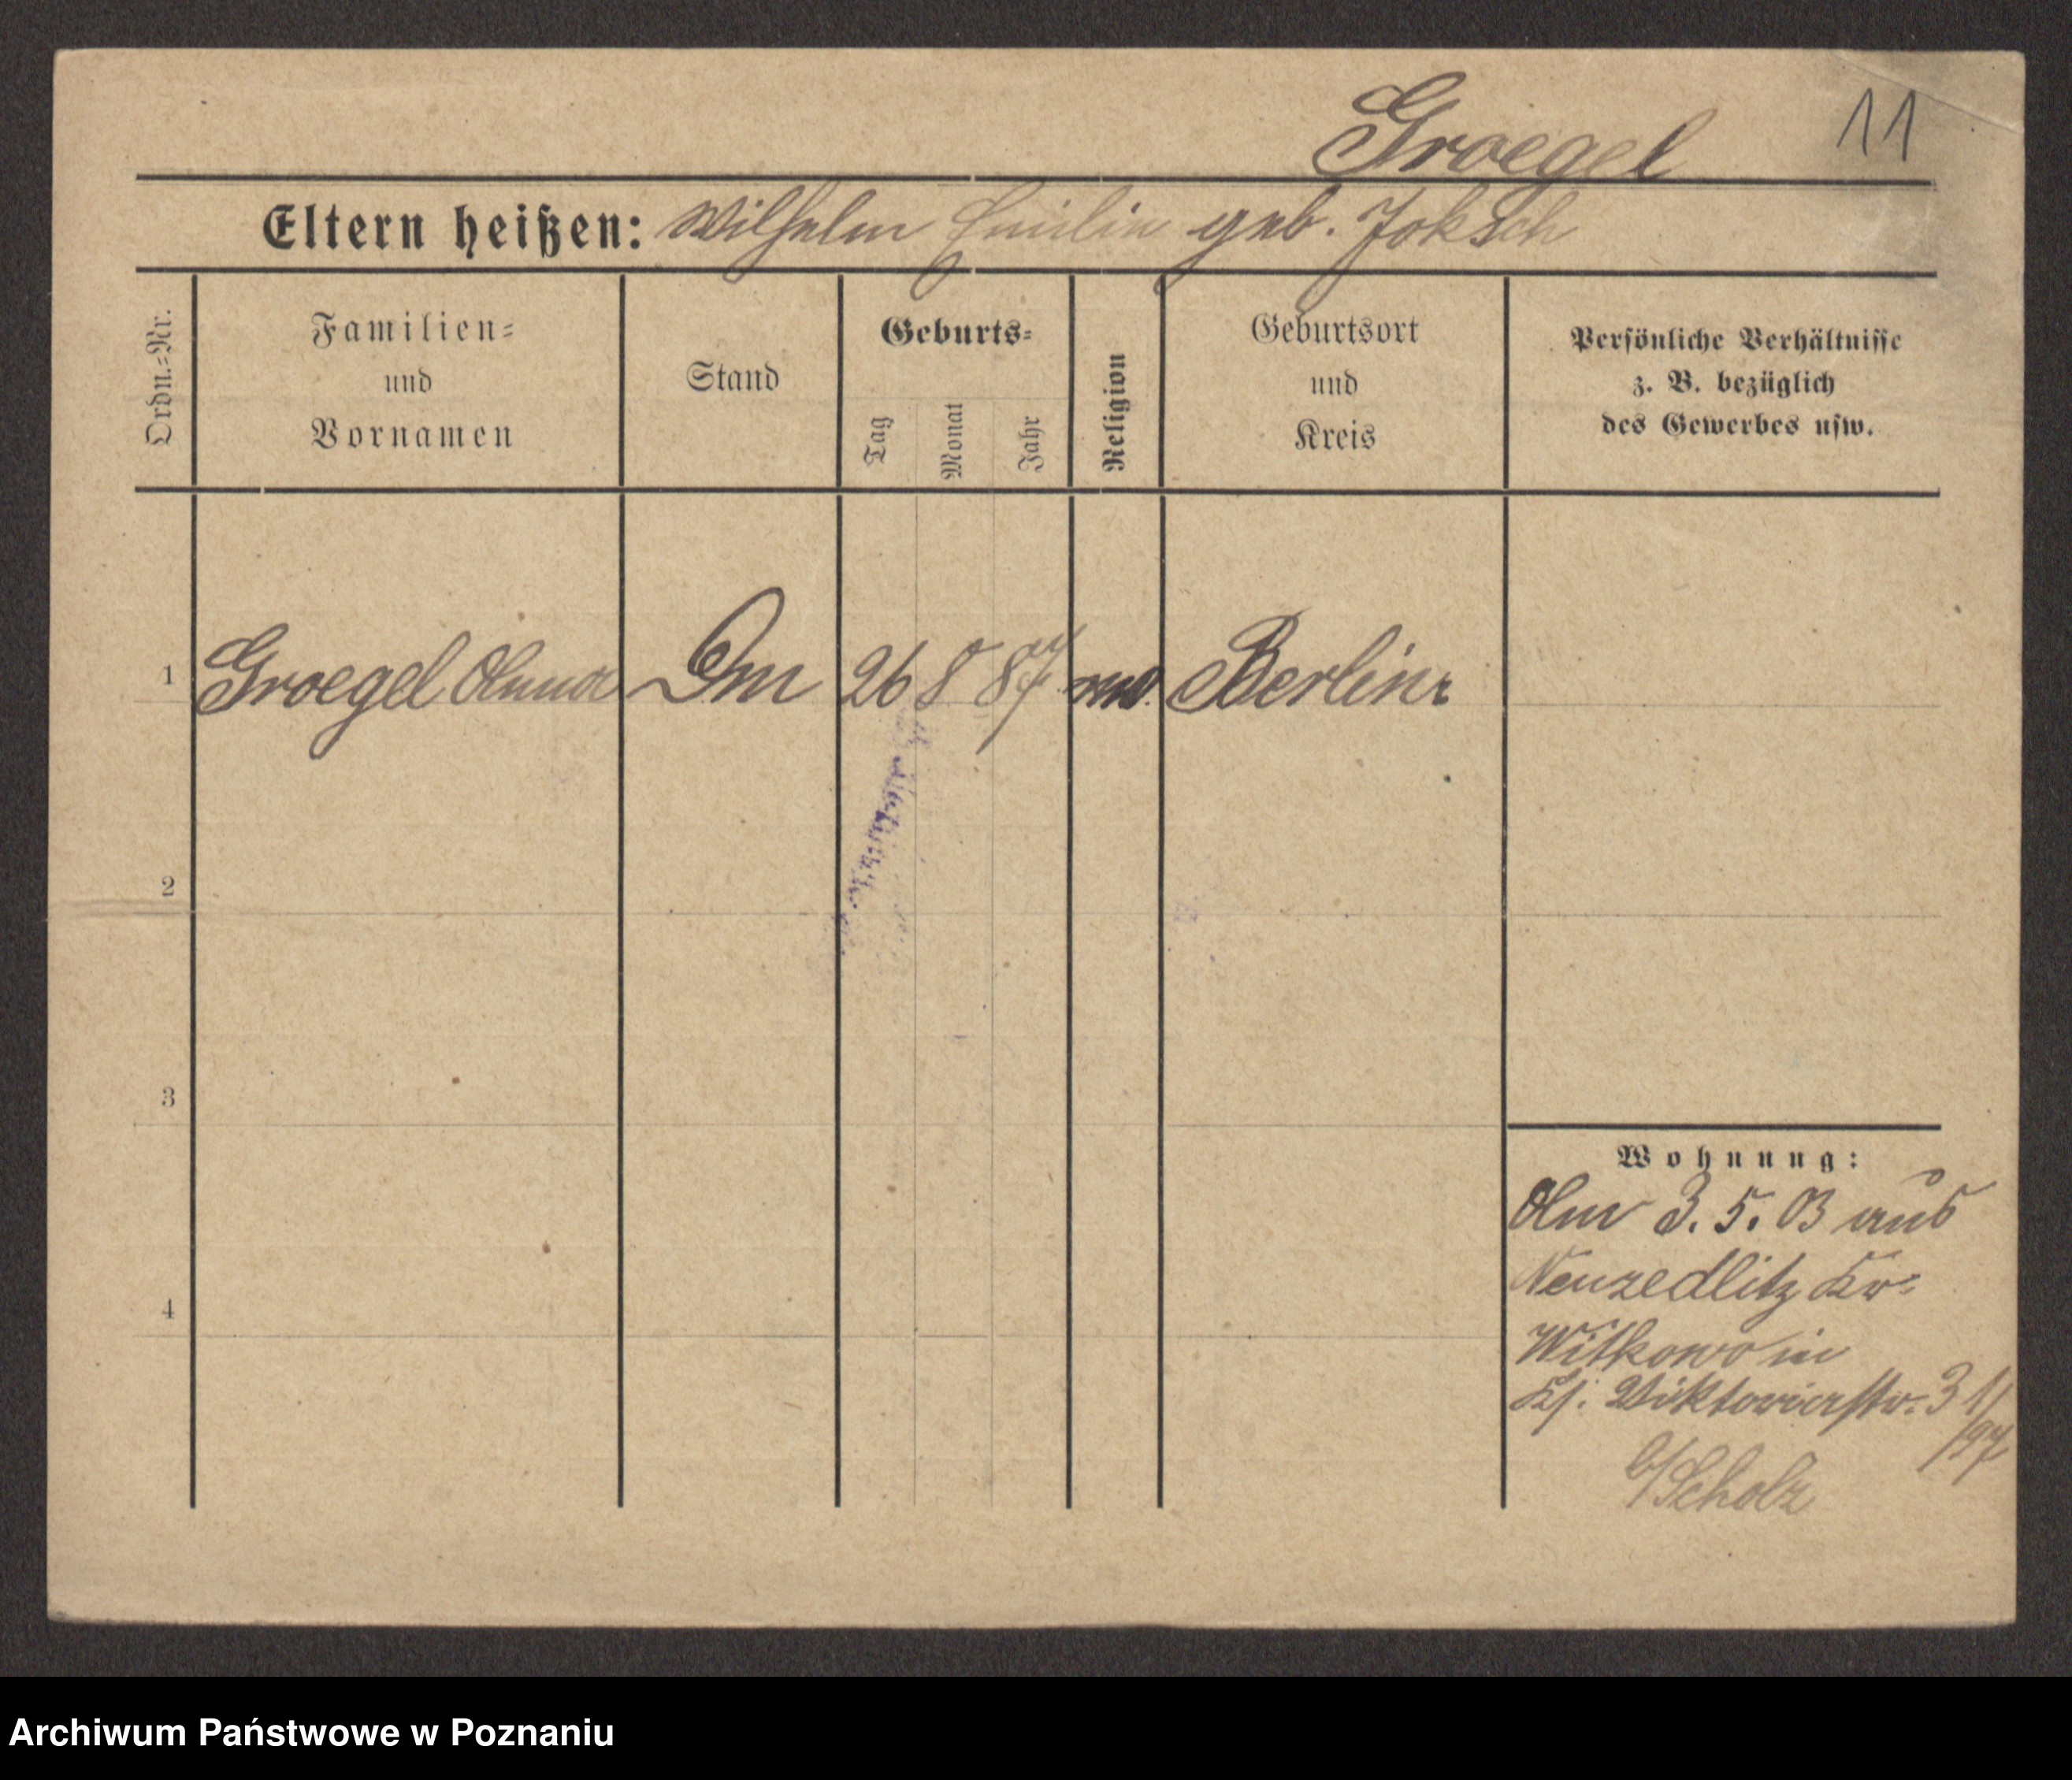 Groegel 11
Eltern heißen: Wilhelm Emilie geb. Joksch
Ordn.=Nr.
Familien=
und
Vornamen
Stand
Geburts=
Tag
Monat
Jahr
Religion
Geburtsort
und
Kreis
Persönliche Verhältnisse
z. B. bezüglich
des Gewerbes usw.
1 Groegel Anna 26 8 87 Berlin
2
3
4
Wohnung:
Am 3.5.03 aus
Neuzedlitz Kr.
Witkowo in
Viktoriastr. 31
b/Scholz
Archiwum Państwowe w Poznaniu